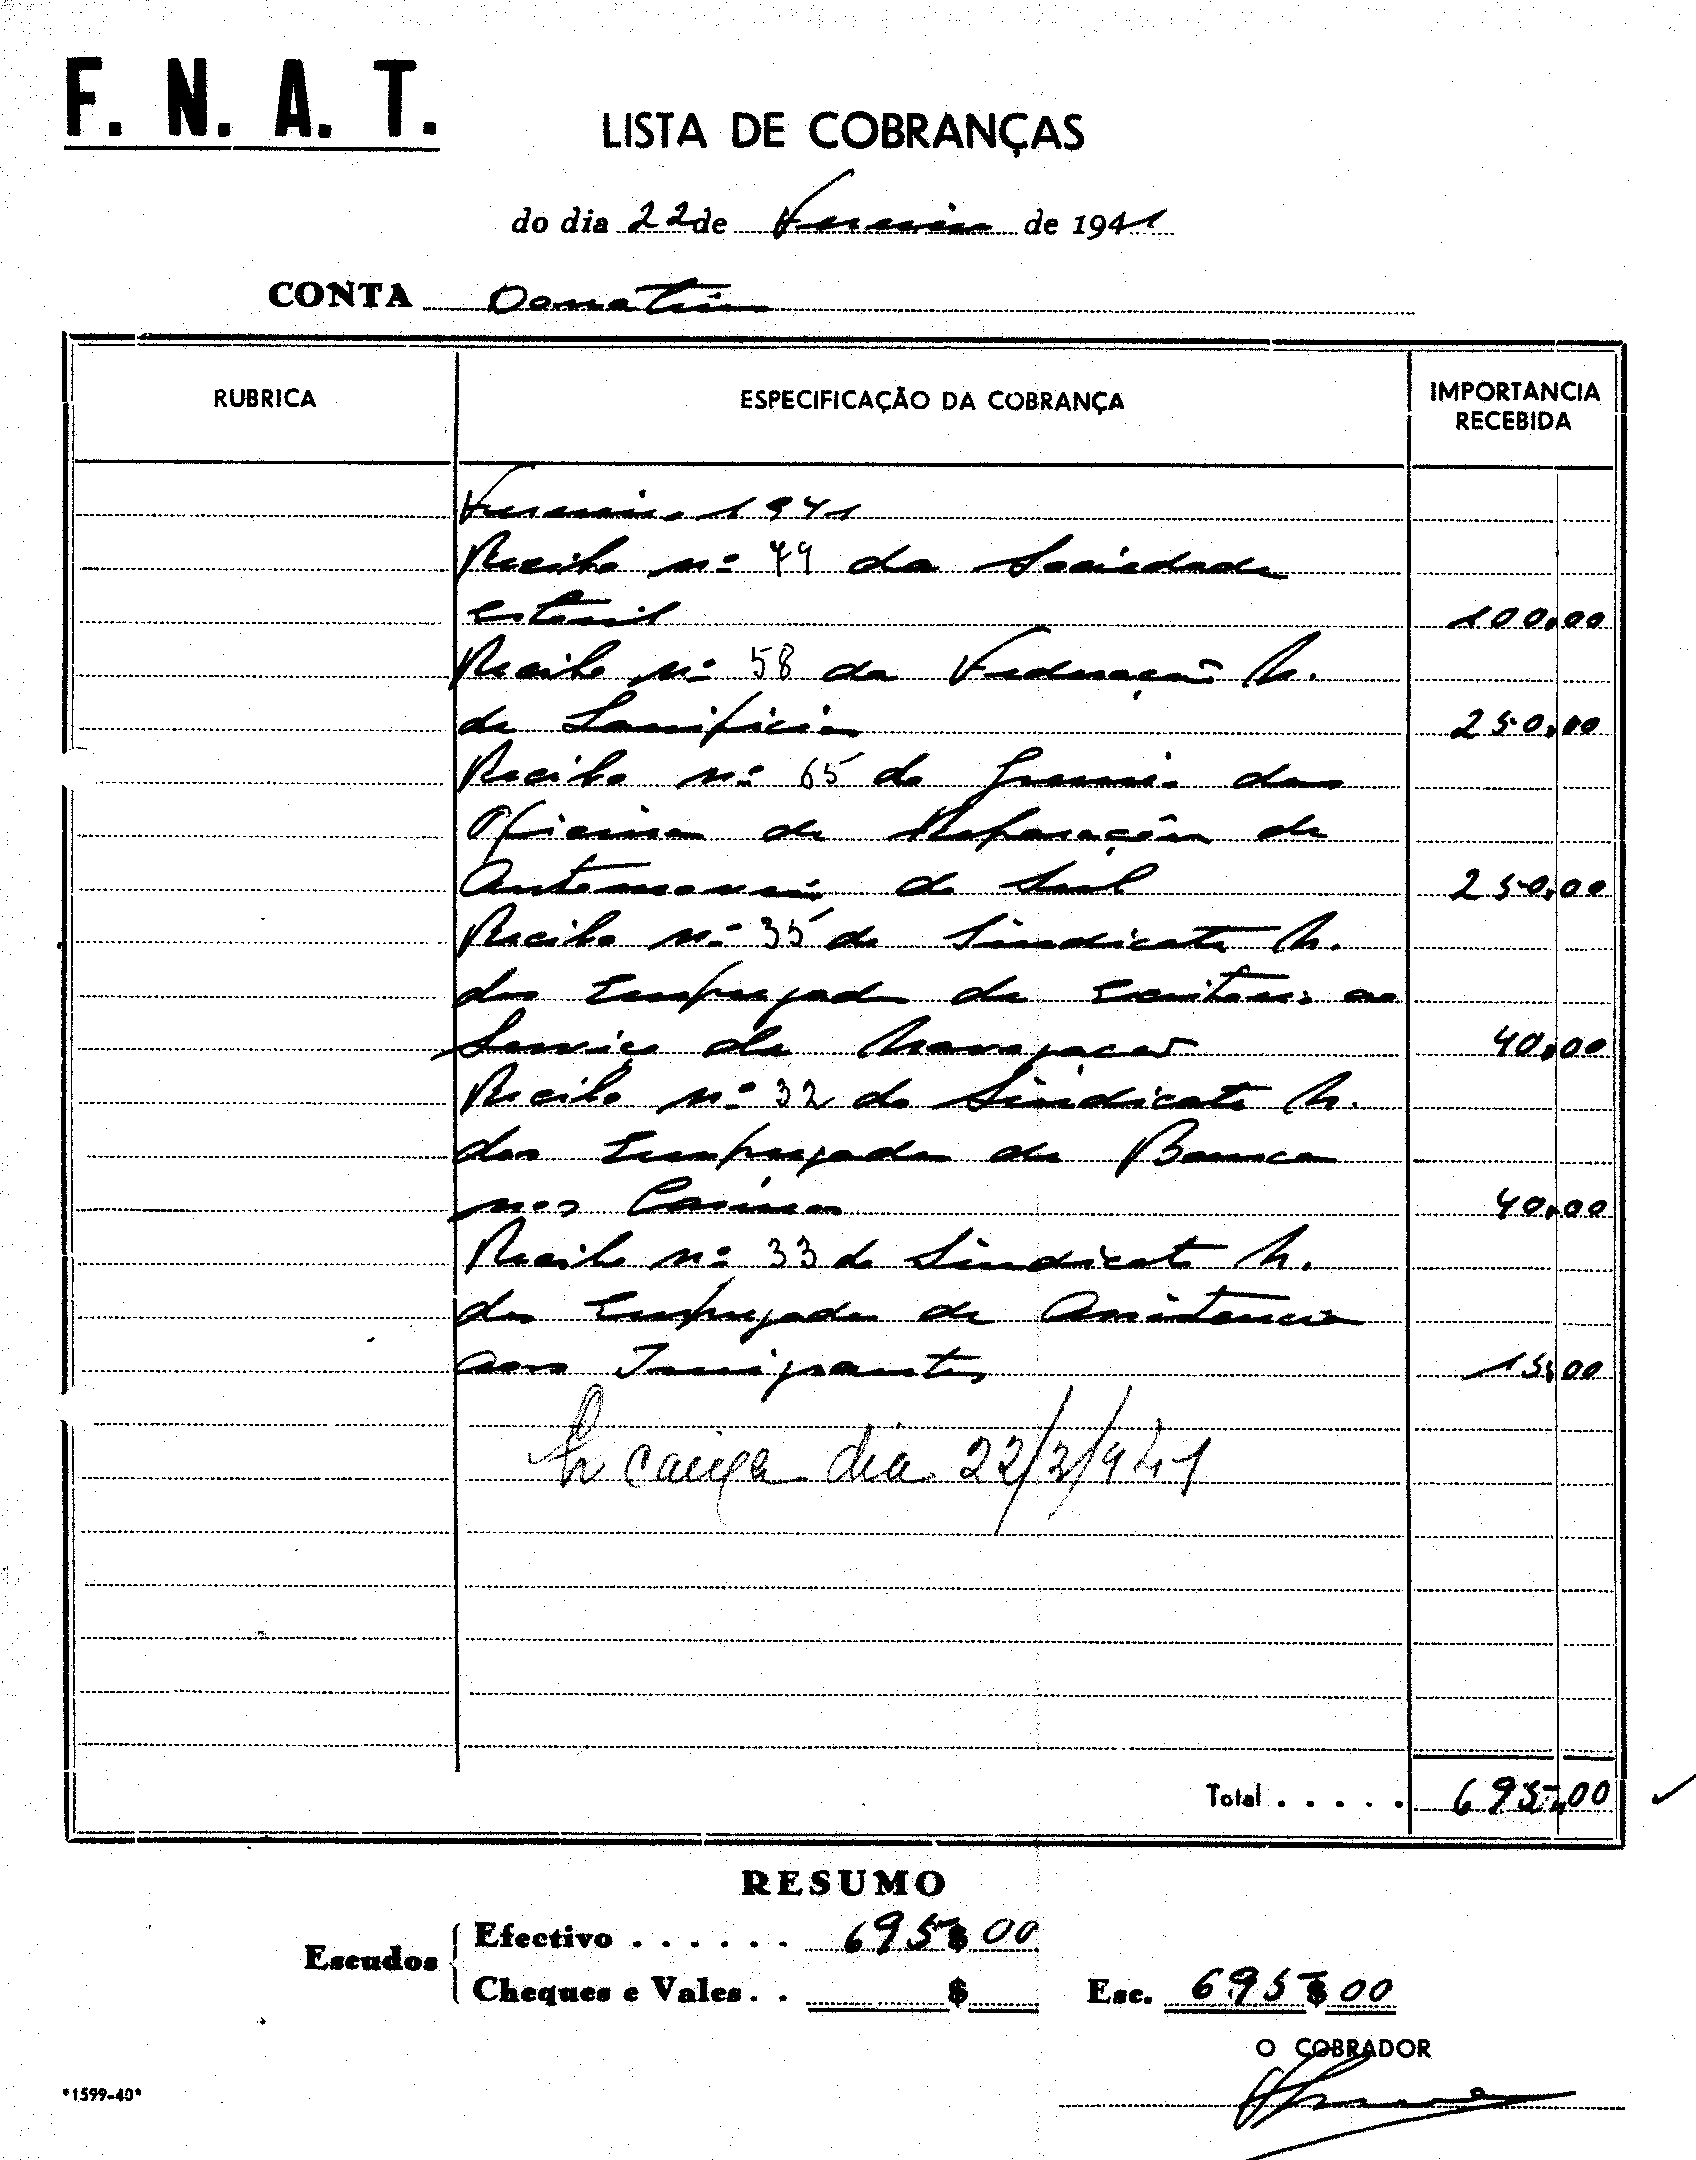 F. N. A. T.
LISTA DE COBRANÇAS
do dia 22 de Fevereiro de 1941
CONTA Donativos
RUBRICA ESPECIFICAÇÃO DA COBRANÇA IMPORTANCIA RECEBIDA
Fevereiro 1941
Recibo nº 79 da Sociedade
Estoril 100,00
Recibo nº 58 da Federação N.
de Lanifícios 250,00
Recibo nº 65 do Gremio das
Oficinas de Reparações de
Automoveis do Sul 250,00
Recibo nº 35 do Sindicato N.
dos Empregados de Escritorio ao
Serviço da Navegação 40,00
Recibo nº 32 do Sindicato N.
dos Empregados de Banca
nos Casinos 40,00
Recibo nº 33 do Sindicato N.
dos Empregados de Assistencia
aos Imigrantes 15,00
caixa dia 22/2/941
Total . . . . . 695,00
RESUMO
Escudos
Efectivo . . . . . . 695$00
Cheques e Vales. . $
Esc. 695$00
O COBRADOR
*1599-40*